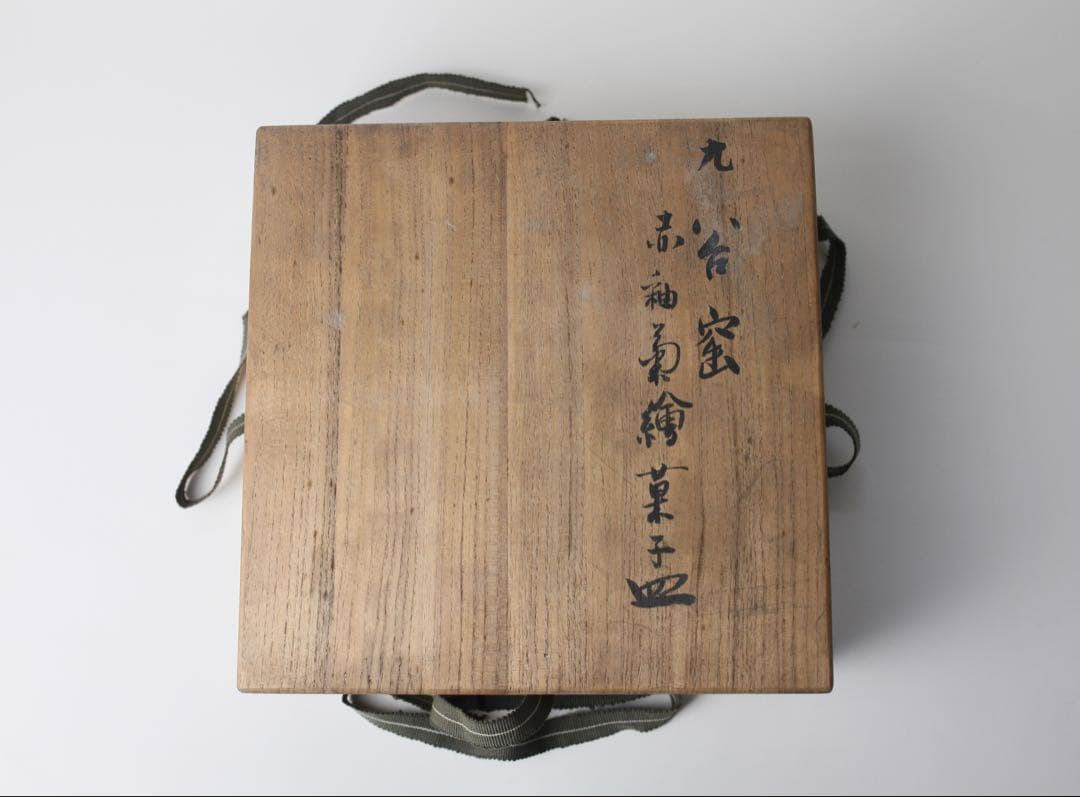 九谷窑
赤釉菊繪菓子皿